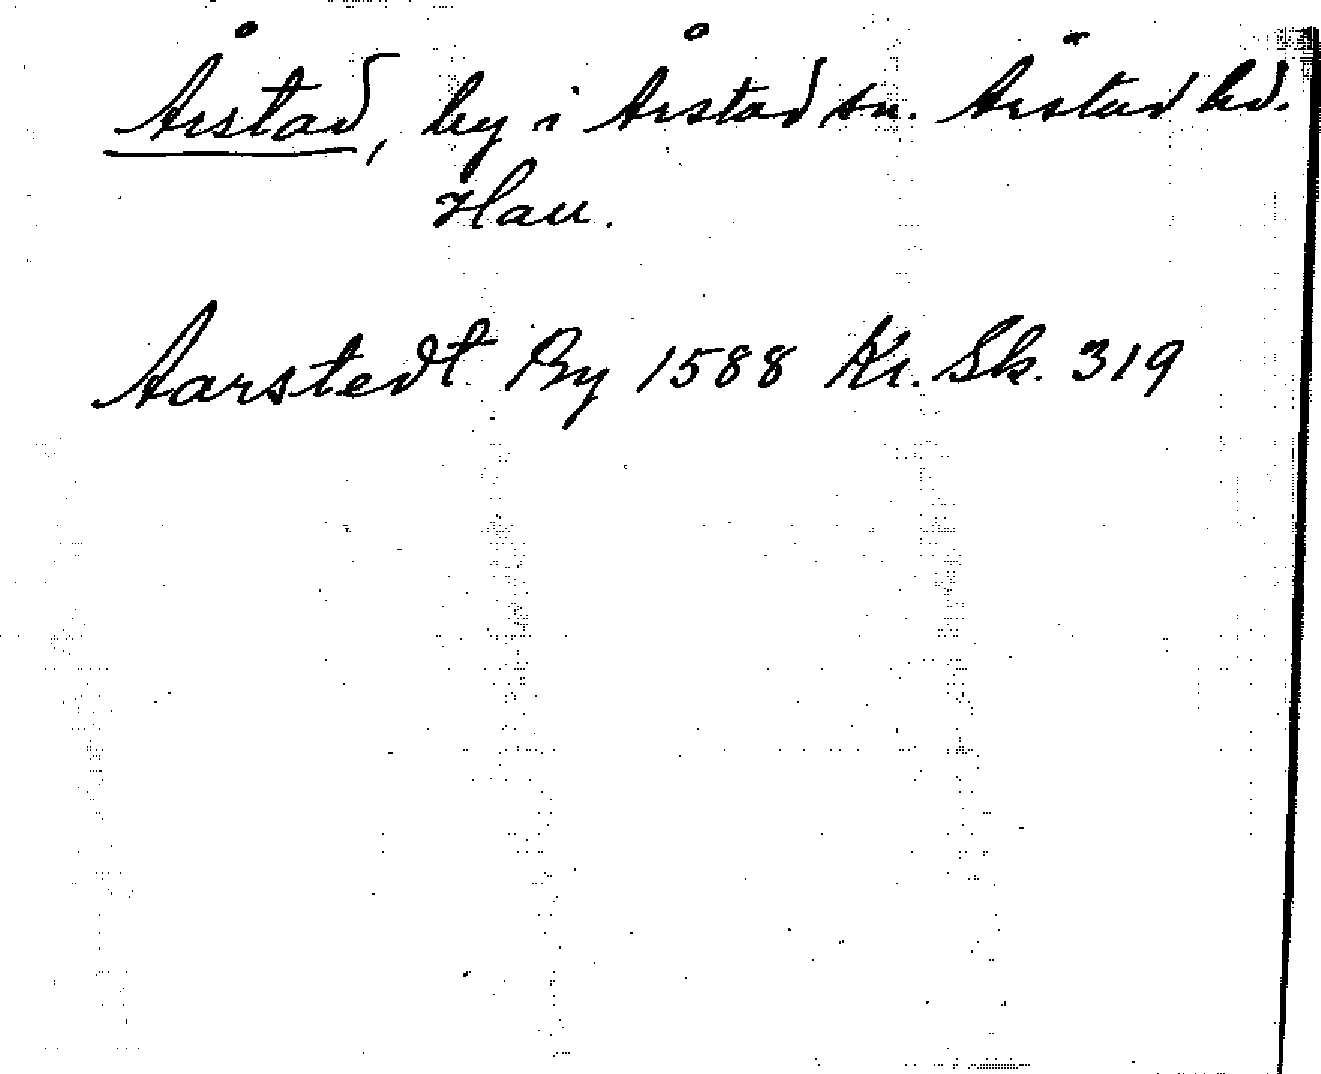 Årstad, by i Årstad sn. Årstad hd.
Hall.
Aarstedt By 1588 Kr. Sk. 319